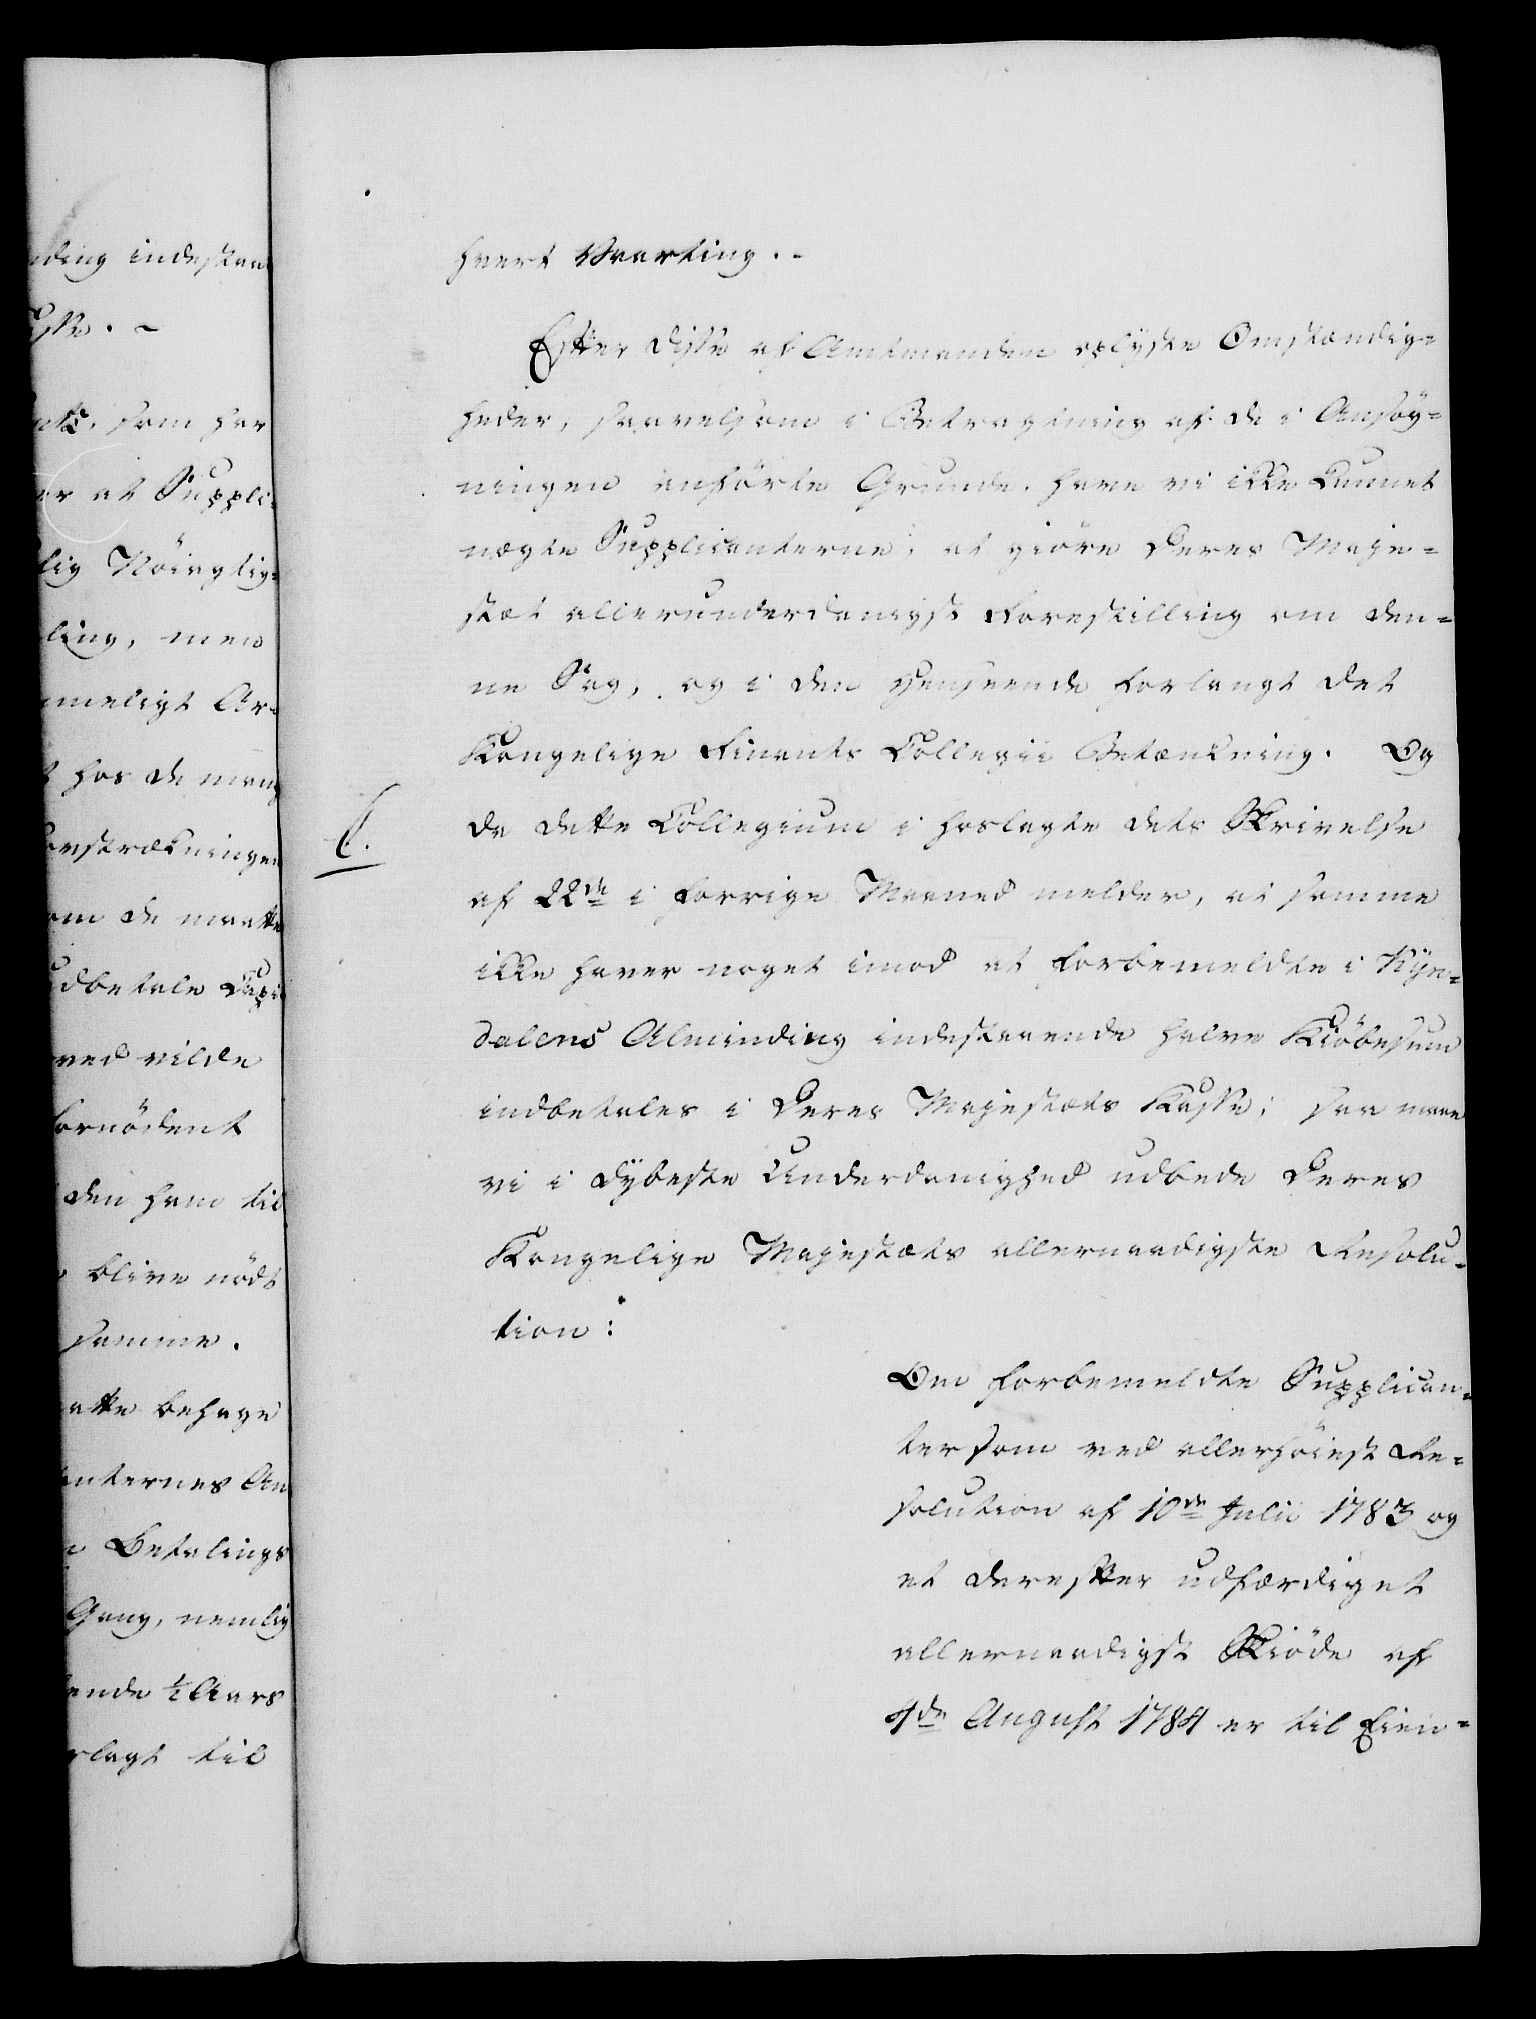 nding indestaa
asse. -
nts, som har
or at Suppli-
lig Nöiagtig-
ling, men
mmeligt Ar-
t hos de mang
forstrækningen
om de maatte
udbetale Capi
ved vilde
fornödent
den ham til
blive nödt
samme.
atte behage
anternes An
Betalings
Gang, nemlig
ende ½ Aars
rlagt til
hvert Vaarting. -
Efter disse af Amtmanden oplyste Omstændig-
heder, saavelsom i Betragtning af de i Ansøg-
ningen anförte Grunde, have vi ikke kunnet
nægte Supplicanterne, at giöre Deres Maje-
stæt allerunderdanigst Forestilling om den-
ne Sag, og i den Henseende forlangt det
Kongelige Finants Collegii Betænkning. Og
da dette Collegium i hoslagte dets Skrivelse
L.
af 22de i forrige Maaned melder, at samme
ikke haver noget imod at forbemeldte i Ryn-
dalens Alminding indestaaende halve Kiöbesum
indbetales i Deres Majestæts Kasse; saa maae
vi i dybeste Underdanighed udbede Deres
Kongelige Majestæts allernaadigste Resolu-
tion:
Om forbemeldte Supplican-
ter som ved allerhöiest Re-
solution af 10de Julii 1783 og
et derefter udfærdiget
allernaadigst Skiöde af
4de August 1784 er til Eien-